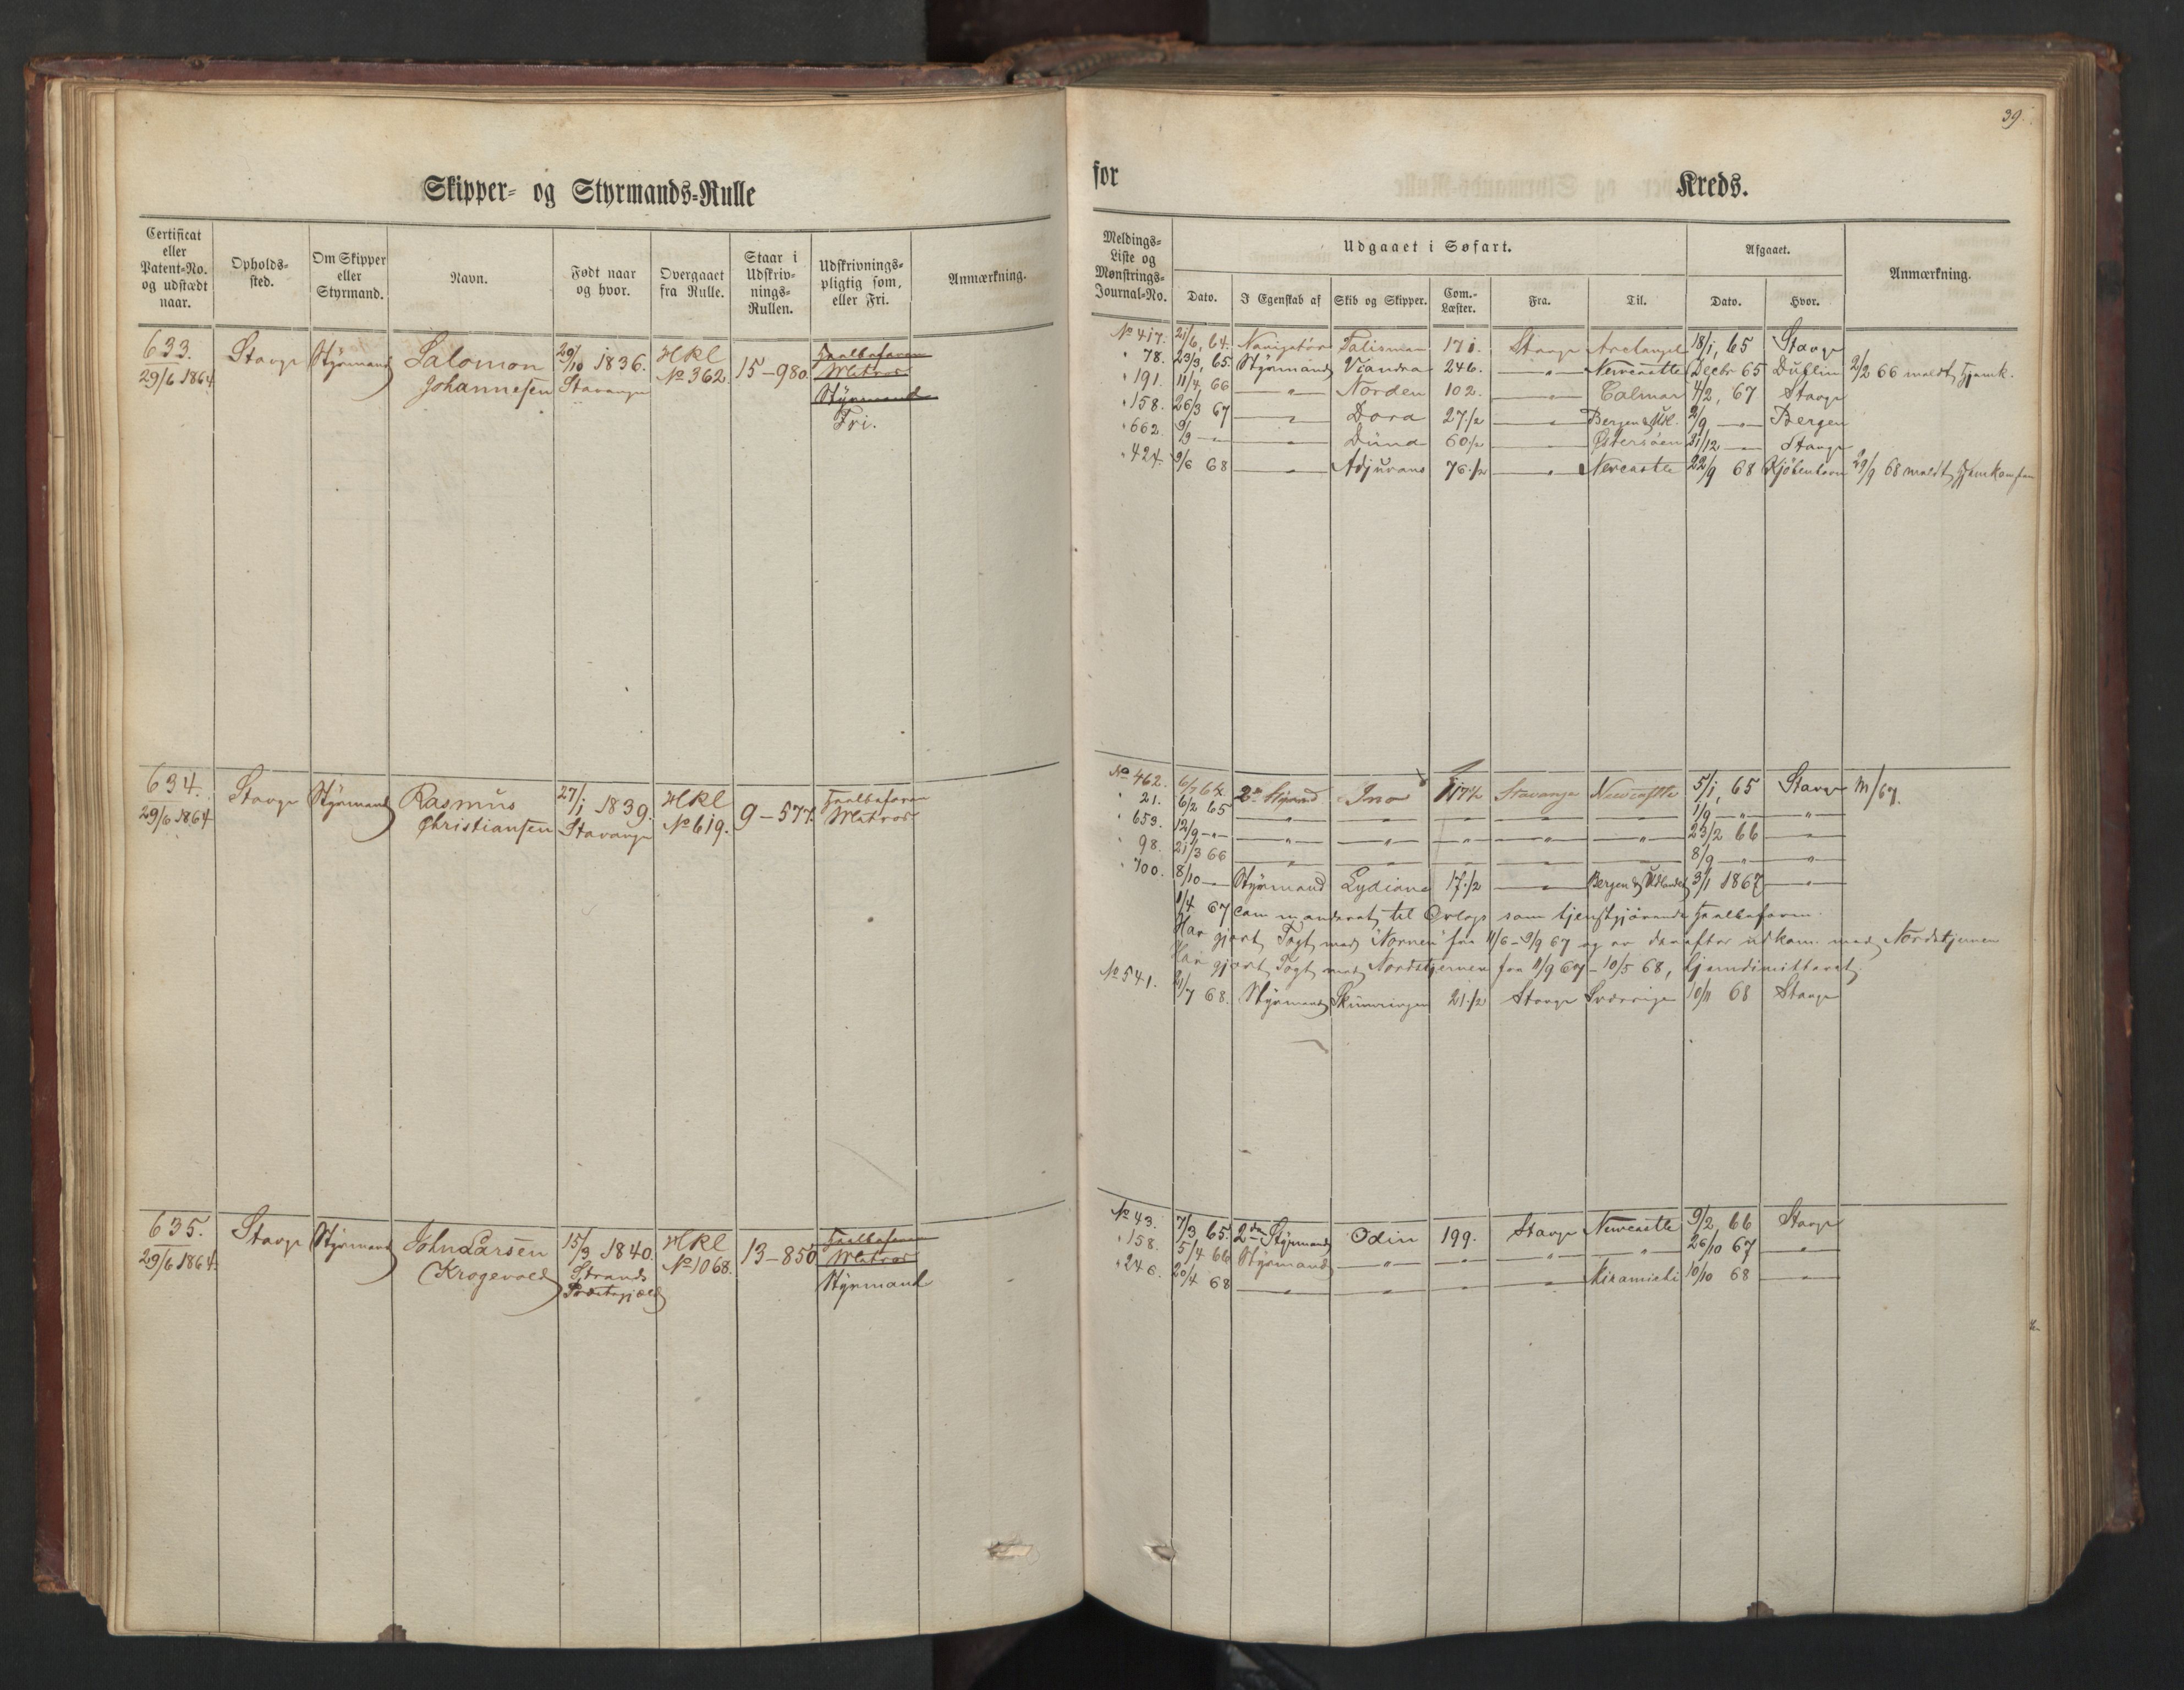 39.
Skipper- og Styrmands-Rulle
for Kreds.
Certificat eller Patent-No. og udstædt naar.
Opholds-sted.
Om Skipper eller Styrmand.
Navn.
Født naar og hvor.
Overgaaet fra Rulle.
Staar i Udskriv-nings-Rullen.
Udskrivnings-pligtig som, eller Fri.
Anmærkning.
Meldings-Liste og Mønstrings-Journal-No.
Udgaaet i Søfart.
Dato. I Egenskab af Skib og Skipper. Com.-Læster. Fra. Til.
Afgaaet.
Dato. Hvor.
Anmærkning.
633. Stavgr Styrmand Salomon 29/10 1836. Hkl 15-980.
29/6 1864 Johannesen Stavanger No 362. Matros
Styrmand
Fri.
No 417. 21/6, 64. Navigatør Talisman 171. Stavgr Archangel 18/1, 65 Stavgr
" 78. 23/3, 65. Styrmand 246. " Newcastle Decbr 65 Dublin 2/2 66 meldt hjemk.
" 191. 11/4, 66 " Norden 102. " Calmar 4/2, 67 Stavgr
" 158. 26/3 67 " Dora 27 1/2 " Bergen & Udl. 2/9 " Bergen
" 662. 9/9 " " Düna 60 1/2 " Østersøen 21/12 " Stavgr
" 424. 9/6 68 " Adjutans 76 1/2 " Newcastle 22/9 68 Kjøbenhavn 29/9 68 meldt hjemkommen
634. Stavgr Styrmand Rasmus 27/1 1839. Hkl 9-577.
29/6 1864 Christiansen Stavanger No 619. Matros
No 462. 6/7 64. 2den Styrmd Ino 117 1/2 Stavanger Newcastle 5/1, 65 Stavgr
" 21. 6/2 65 " " " " " 1/9 " "
" 653. 12/9 " " " " " " 23/2 66 "
" 98. 21/3 66 " " " " " 8/9 " "
" 700. 8/10 Styrmand Lydiane 17 1/2 " Bergen & Udlandet 3/1 1867 "
1/4 67 commanderet til Orlogs som tjenstgjørende
Har gjort Togt med "Nornen" fra 11/6 - 9/9 67 og er derefter udkom. med Nordstjernen
Har gjort Togt med Nordstjernen fra 11/9 67 - 10/5 68, hjemdimitteret.
No 541. 21/7 68. Styrmand 21 1/2 Stavgr Sverrige 10/11 68 Stavgr
635. Stavgr Styrmand John Larsen 15/3 1840. Hkl 13-850.
29/6 1864. Krogevold Strands No 1068. Matros
Præstegjæld Styrmand
No 43. 7/3, 65. 2den Styrmand Odin 199. Stavgr Newcastle 9/2, 66 Stavgr
" 158. 5/4 66 Styrmand " " " " 26/10 67 "
" 246. 20/4 68 " " " " Miramichi 10/10 68 "